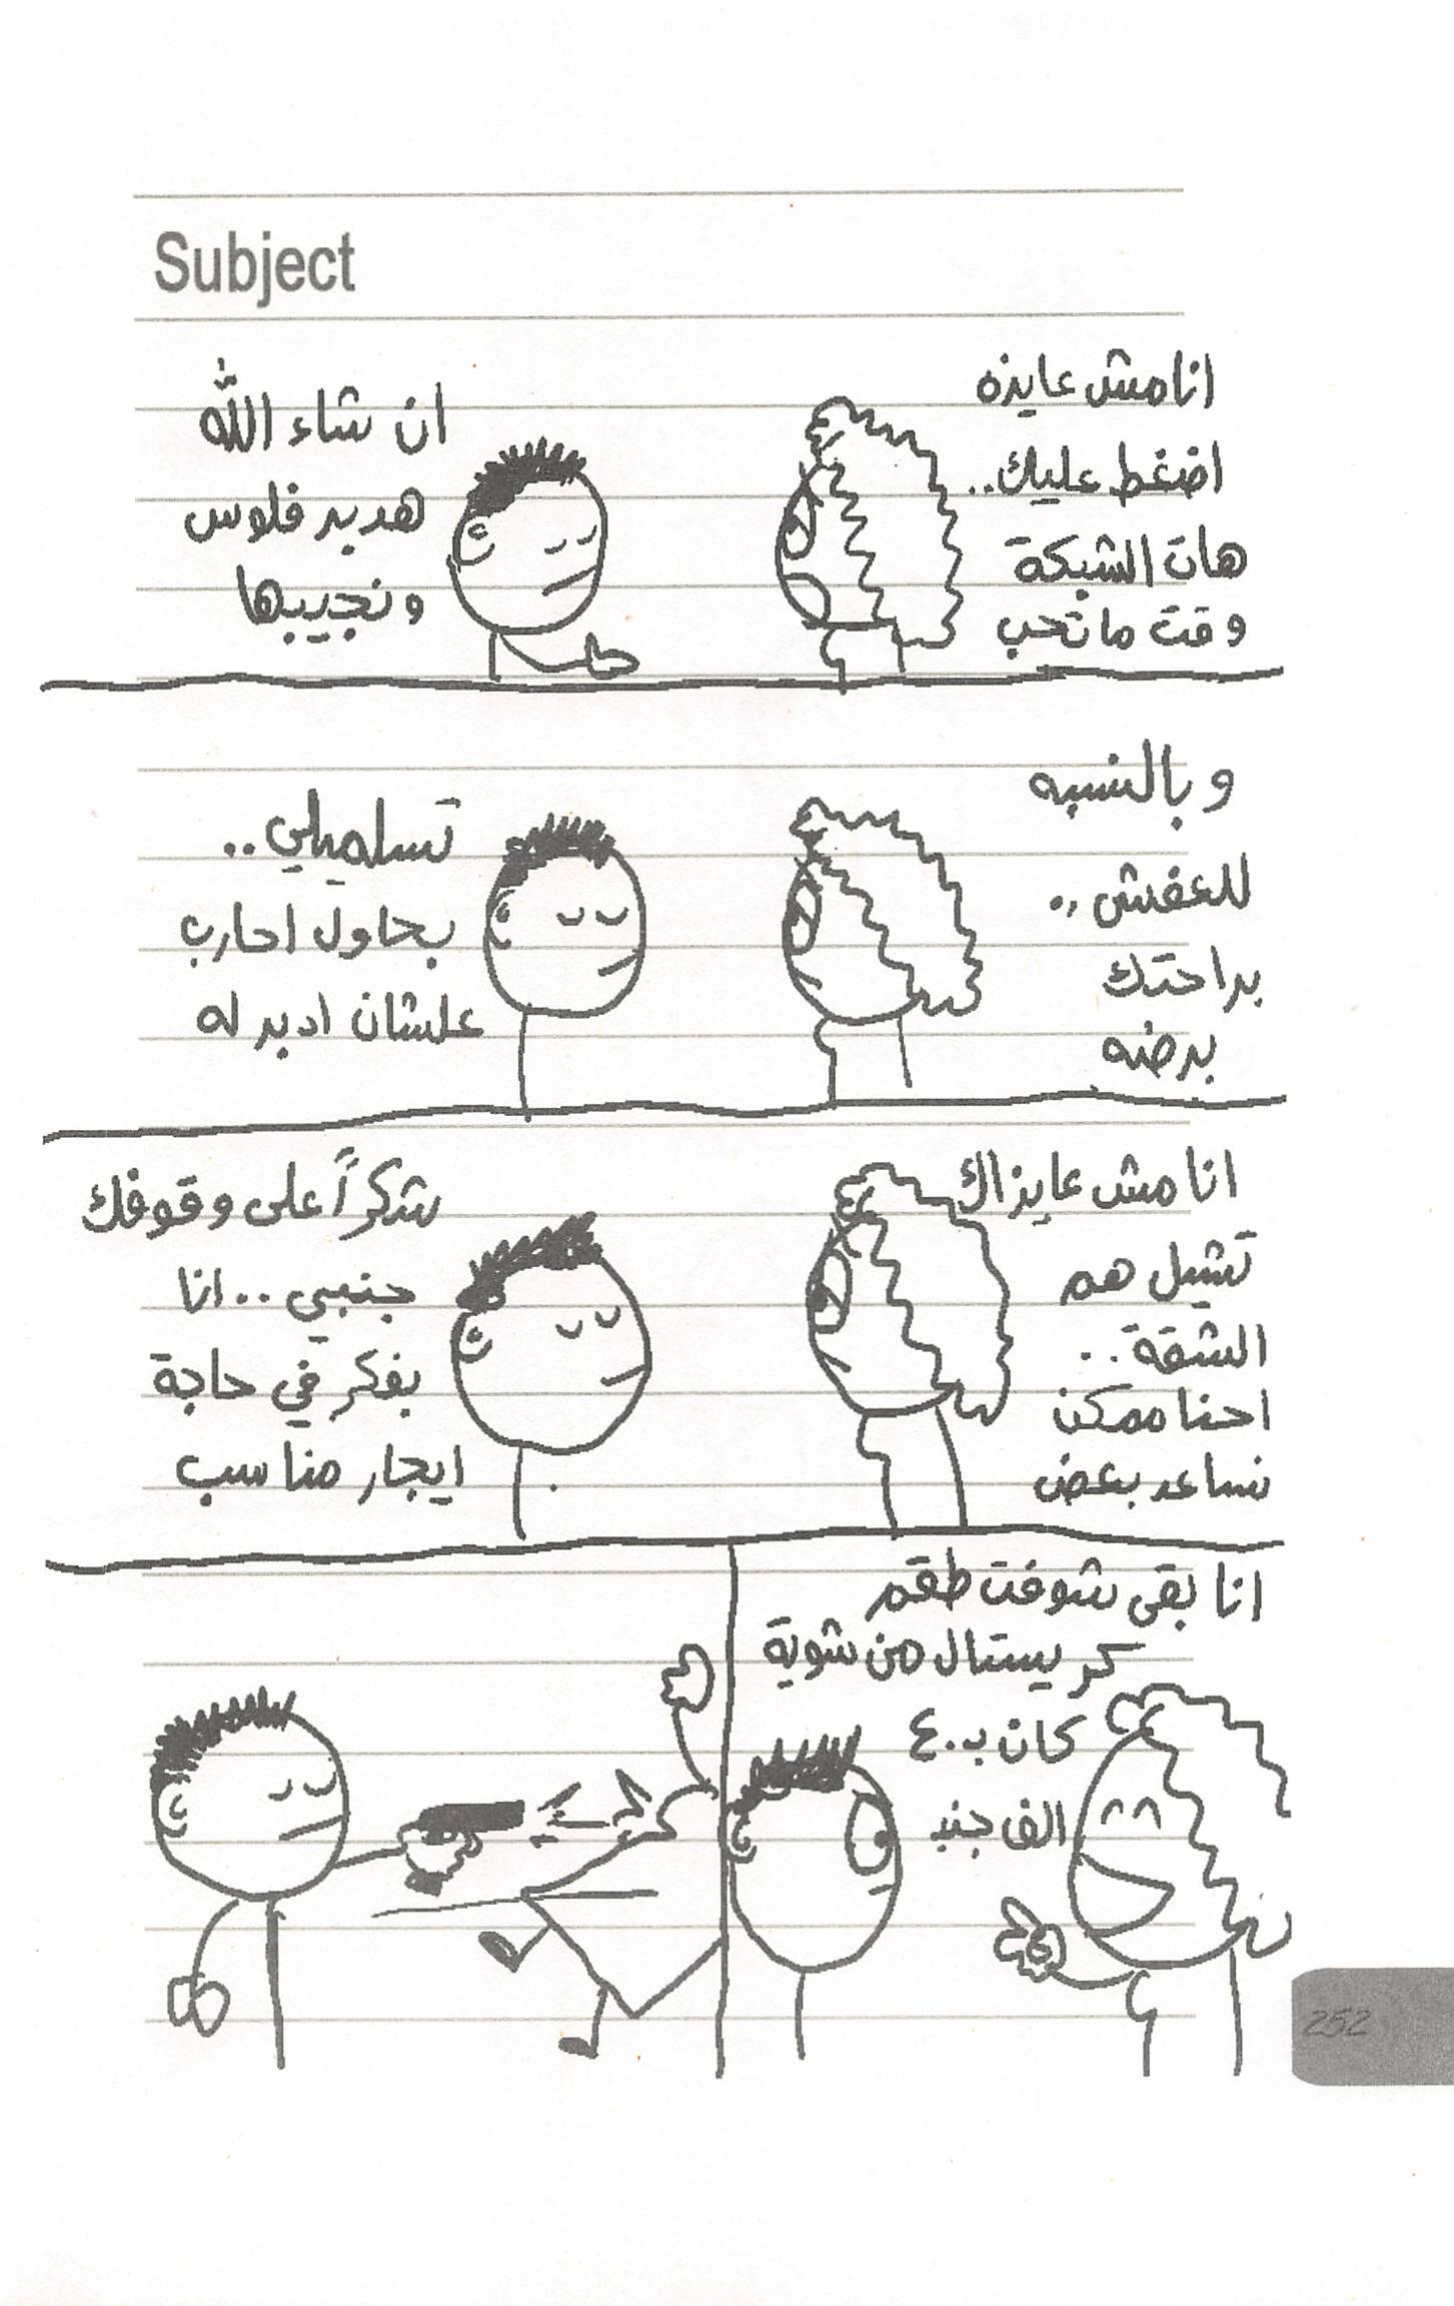 Subject
انا مش عايزه
اضغط عليك..
هات الشبكة
وقت ما تحب
ان شاء الله
هدبر فلوس
ونجيبها
وبالنسبه
للعفش..
براحتك
برضه
تسلميلي..
بحاول احارب
علشان ادبر له
انا مش عايزاك
تشيل هم
الشقة..
احنا ممكن
نساعد بعض
شكراً على وقوفك
جنبي.. انا
بفكر في حاجة
ايجار مناسب
انا بقى شوفت طقم
كريستال من شوية
كان ب٤٠٠
الف جنيه
252